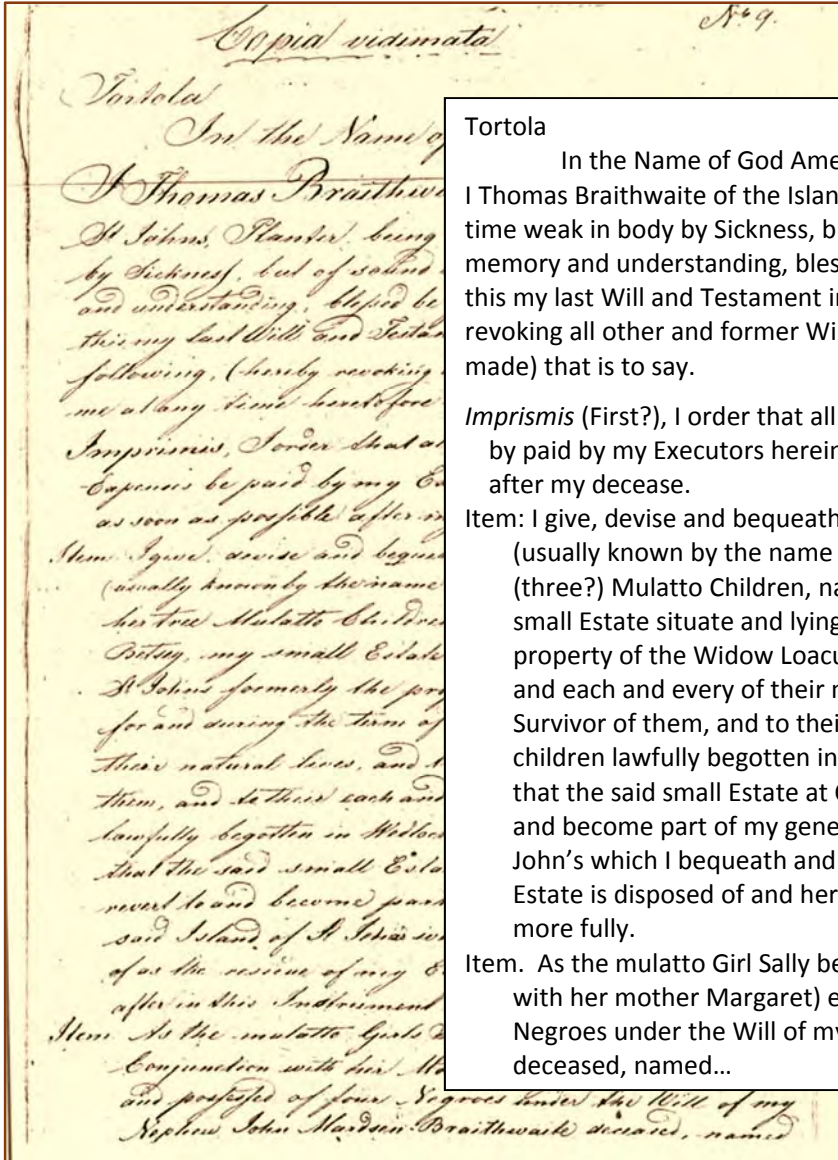 Copia vidimata
No 9.
Tortola
In the Name of
I Thomas Braithw
St Johns, Planter, being
by Sickness, but of sound
and understanding, blessed be
this my last Will and Testam
following, (hereby revoking
me at any time heretofore
Imprimis, I order that al
Expences be paid by my Ex
as soon as possible after m
Item I give, devise and beque
(usually known by the name
her tree Mulatto Childre
Betsey, my small Estate
St Johns formerly the pro
for and during the term of
their natural lives, and t
them, and to their each and
lawfully begotten in Wedloc
that the said small Esta
revert to and become par
said Island of St Johns
of as the residue of my E
after in this Instrument
Item As the mulatto Girl
Conjunction with her Mo
and possessed of four Negroes under the Will of my
Nephew John Mardsen Braithwaite deceased, named
Tortola
In the Name of God Ame
I Thomas Braithwaite of the Islan
time weak in body by Sickness, b
memory and understanding, bles
this my last Will and Testament i
revoking all other and former Wi
made) that is to say.
Imprismis (First?), I order that all
by paid by my Executors herein
after my decease.
Item: I give, devise and bequeath
(usually known by the name
(three?) Mulatto Children, na
small Estate situate and lying
property of the Widow Loacu
and each and every of their n
Survivor of them, and to thei
children lawfully begotten in
that the said small Estate at
and become part of my gene
John’s which I bequeath and
Estate is disposed of and her
more fully.
Item. As the mulatto Girl Sally be
with her mother Margaret) e
Negroes under the Will of my
deceased, named…